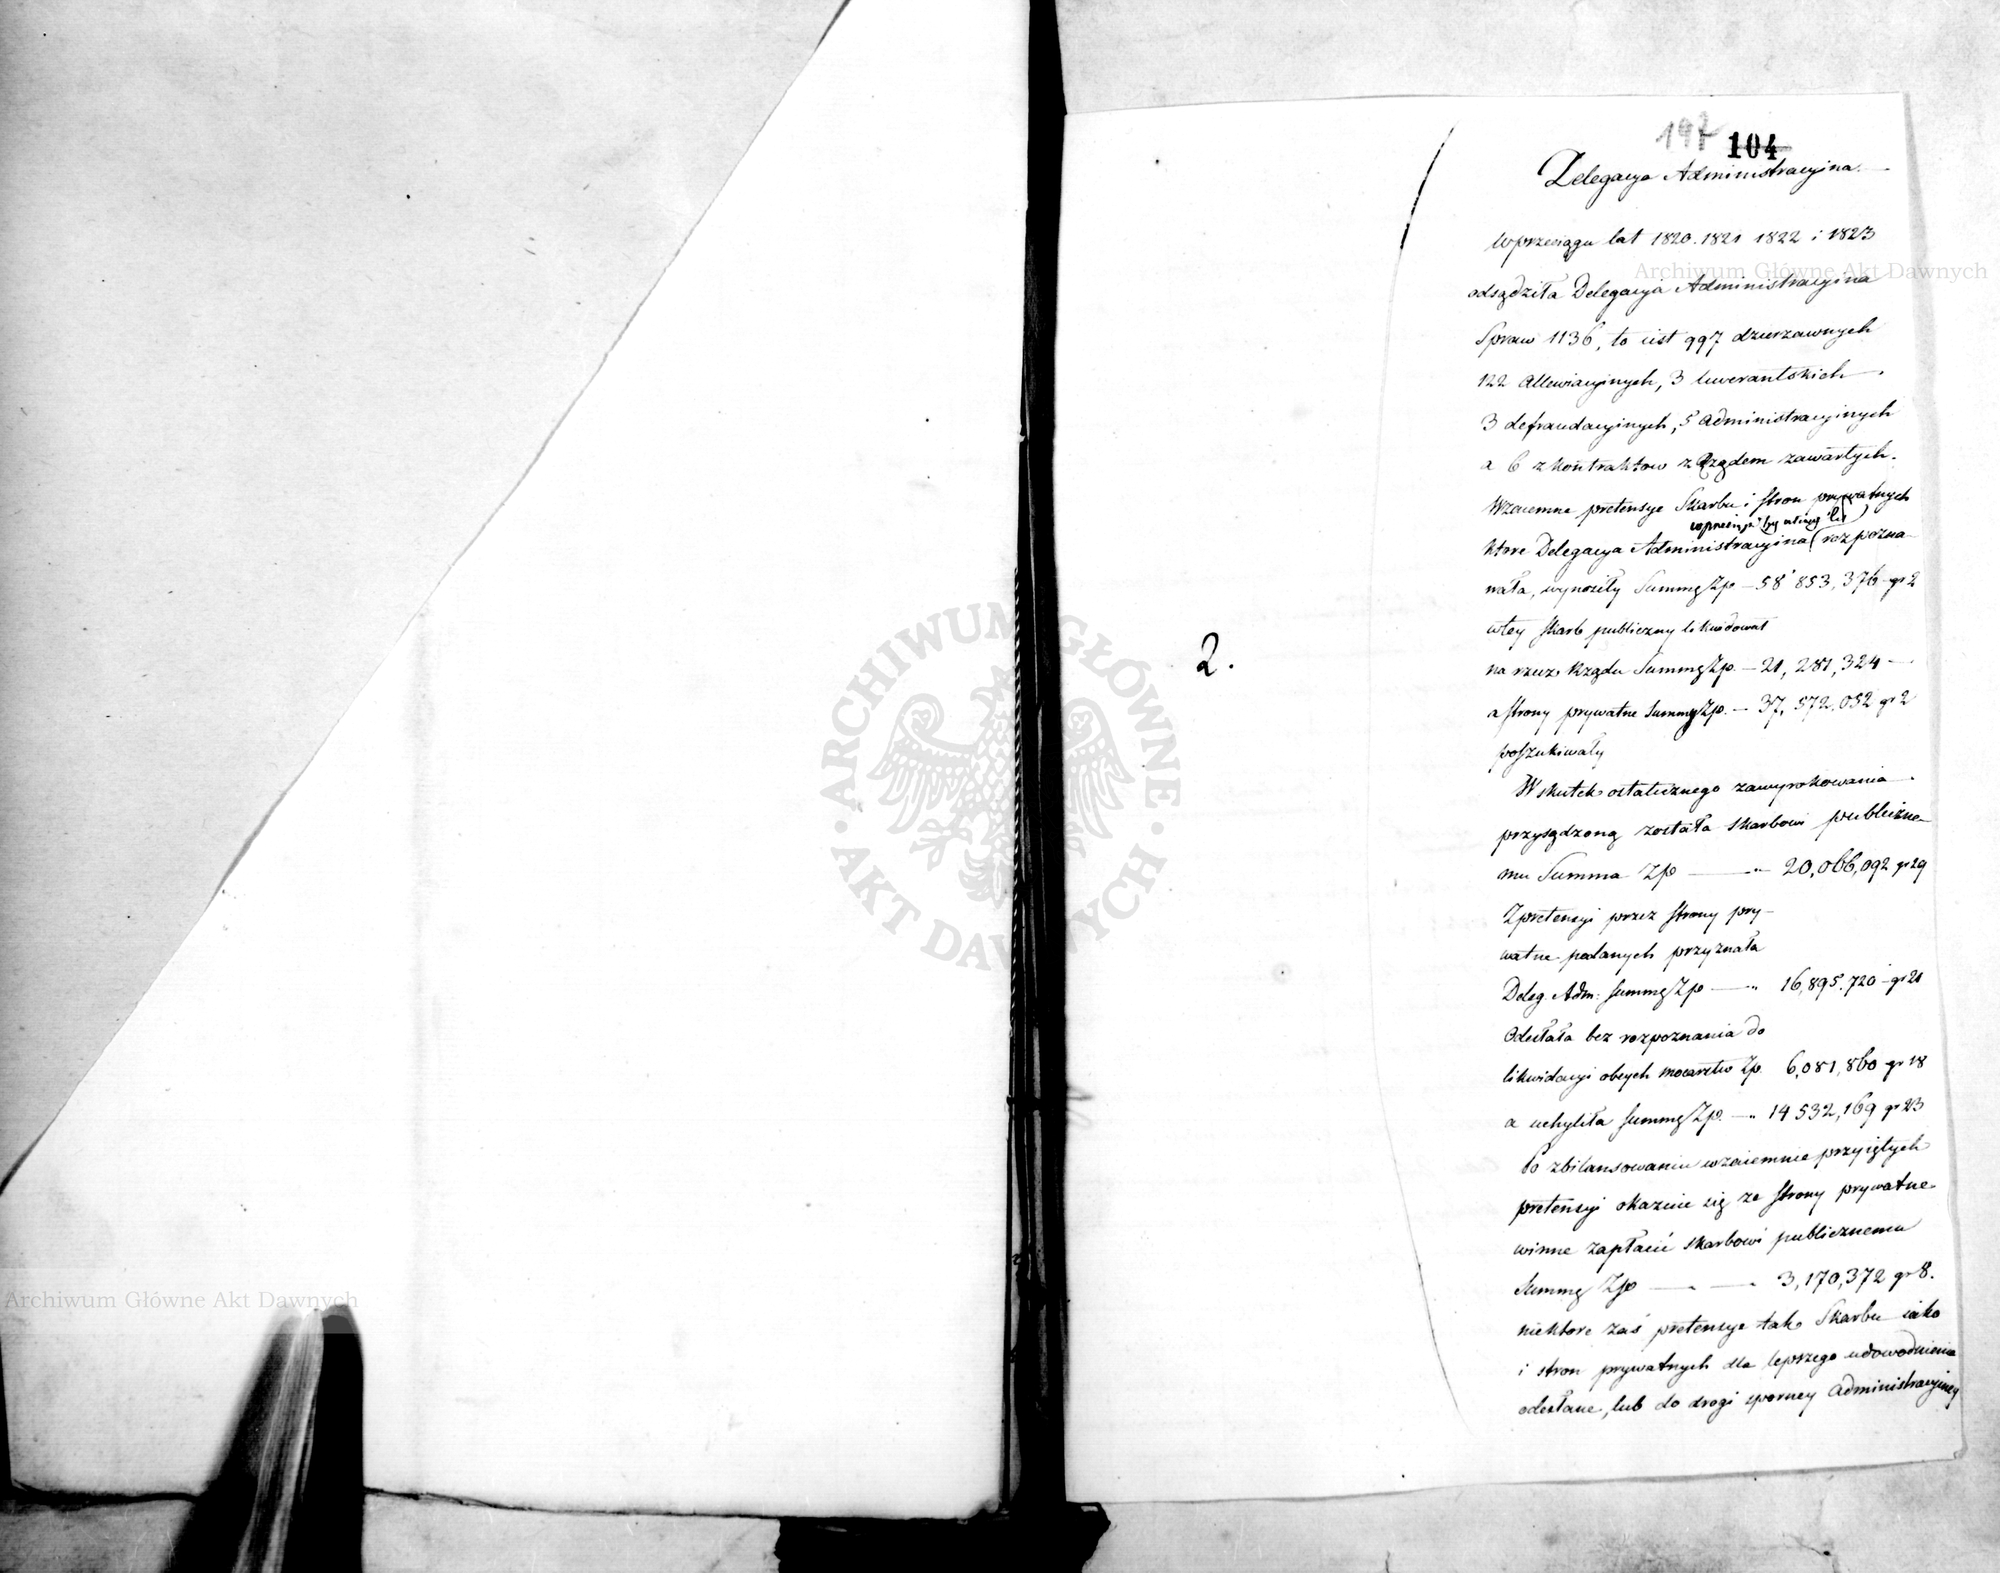 104
Delegacya Administracyina
W przeciągu lat 1820. 1821 1822 i 1823
odsądziła Delegacyia Administracyina
Spraw 1136, to iest 997 dzierzawnych
122 allewiacyinych, 3 liwerantskich
3 defraudacyinych, 5 administracyinych
a 6 z kontraktow z Rządem zawartych.
Wzaiemne pretensye Skarbu i stron prywatnych
ktore Delegacya Administracyina rozpozna-
wała, wynosiły Summę Zp — 58'853,376 gr 2
w tey Skarb publiczny likwidował
na rzecz Rządu Summę Zp. — 21,281,324 —
a Strony prywatne Summę Zp. — 37,572.052 gr 2
poszukiwały
2.
W skutek ostatecznego zawyrokowania
przysądzoną została Skarbowi publiczne-
mu Summa Zp — " 20,066,092 gr 29
Z pretensyi przez strony pry-
watne podanych przyznała
Deleg. Adm: Summę Zp — " 16,895.720 - gr 21
Odesłała bez rozpoznania do
likwidacyi obcych mocarstw Zp. 6,081,860 gr 18
a uchyliła summę Zp. — " 14 532,169 gr 23
Po zbilansowaniu wzaiemnie przyiętych
pretensyi okazuie się że Strony prywatne
winne zapłacić skarbowi publicznemu
Summę Zp — — 3,170,372 gr 8.
niektore zaś pretensye tak Skarbu iako
i stron prywatnych dla lepszego udowodnienia
odesłane, lub do drogi sporney administracyiney
Archiwum Główne Akt Dawnych
Archiwum Główne Akt Dawnych
ARCHIWUM GŁÓWNE
AKT DAWNYCH